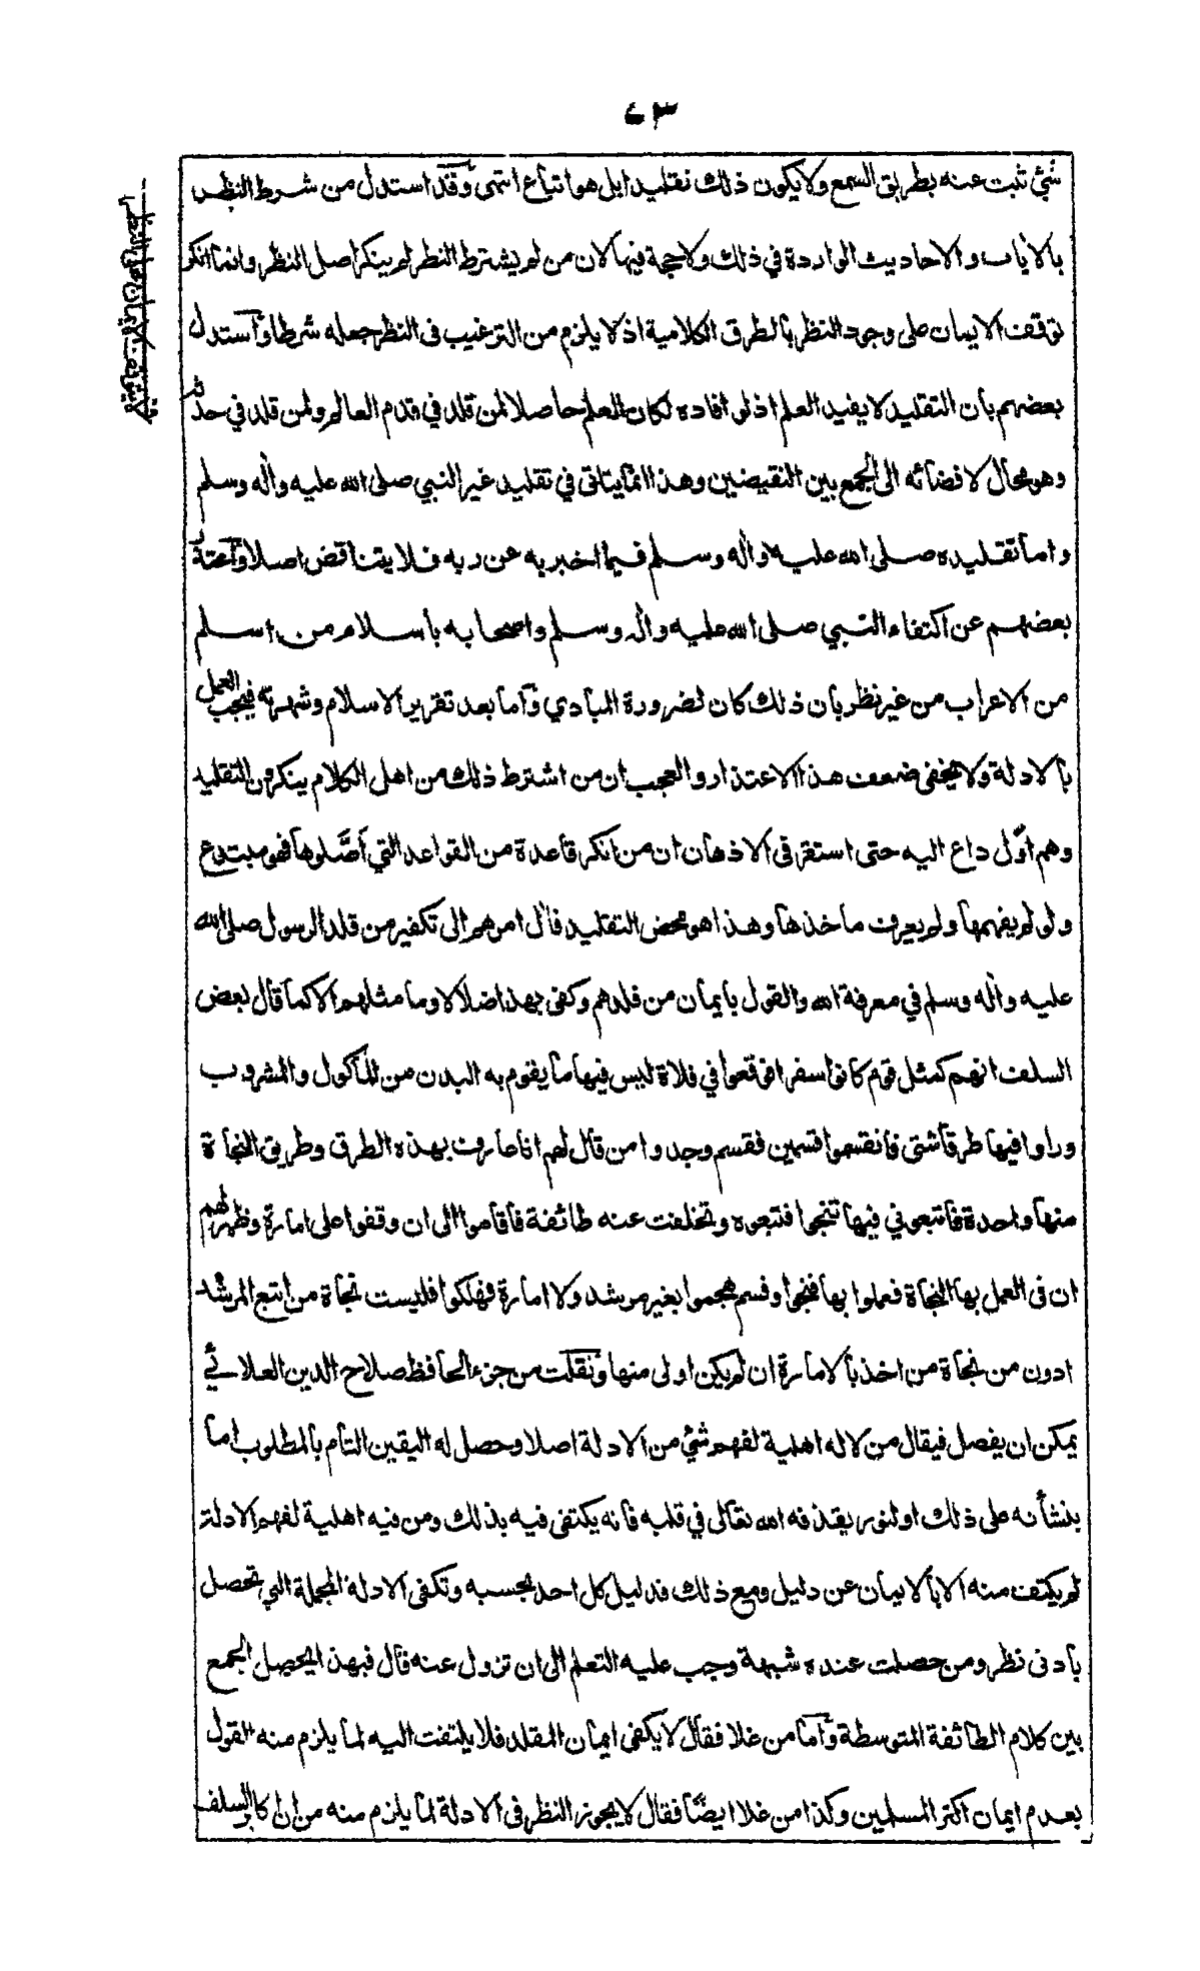 ٧٣
شئ ثبت عنه بطريق السمع ولا يكون ذلك تقليدا بل هو اتباع انتهى وقد استدل من شرط النظر
بالأيات والاحاديث الواردة في ذلك ولا حجة فيها لان من لم يشترط النظر لم ينكر اصل النظر وانما انكر
توقف الايمان على وجود النظر بالطرق الكلامية اذ لا يلزم من الترغيب فى النظر جعله شرطا واستدل
بعضهم بان التقليد لا يفيد العلم اذ لو افاده لكان العلم حاصلا لمن قلد في قدم العالم ولمن قلد في حدثه
وهو محال لافضائه الى الجمع بين النقيضين وهذا انما يتاتى في تقليد غير النبي صلى الله عليه واله وسلم
واما تقليده صلى الله عليه واله وسلم فيما اخبر به عن ربه فلا يتناقض اصلا واعتذر
بعضهم عن اكتفاء النبي صلى الله عليه واله وسلم واصحابه باسلام من اسلم
من الاعراب من غير نظر بان ذلك كان لضرورة المبادي واما بعد تقرير الاسلام وشهرته فيجب العمل
بالادلة ولا يخفى ضعف هذا الاعتذار والعجب ان من اشترط ذلك من اهل الكلام ينكرون التقليد
وهم اوّل داع اليه حتى استقر فى الاذهان ان من انكر قاعدة من القواعد التي أصَّلوها فهو مبتدع
ولو لم يفهمها ولم يعرف ماخذها وهذا هو محض التقليد فأل امرهم الى تكفير من قلد الرسول صلى الله
عليه واله وسلم في معرفة الله والقول بايمان من قلدهم وكفى بهذا ضلالا وما مثلهم الا كما قال بعض
السلف انهم كمثل قوم كانوا سفرا فوقعوا في فلاة ليس فيها ما يقوم به البدن من الماكول والمشروب
وراوا فيها طرقا شتى فانقسموا قسمين فقسم وجدوا من قال لهم انا عارف بهذه الطرق وطريق النجاة
منها واحدة فاتبعوني فيها تنجوا فتبعوه وتخلفت عنه طائفة فاقاموا الى ان وقفوا على امارة وظهر لهم
ان فى العمل بها النجاة فعملوا بها فنجوا وقسم هجموا بغير مرشد ولا امارة فهلكوا فليست نجاة من اتبع المرشد
ادون من نجاة من اخذ بالامارة ان لم يكن اولى منها ونقلت من جزء الحافظ صلاح الدين العلائي
يمكن ان يفصل فيقال من لا له اهلية لفهم شئ من الادلة اصلا وحصل له اليقين التام بالمطلوب اما
بنشأته على ذلك او لنور يقذفه الله تعالى في قلبه فانه يكتفى فيه بذلك ومن فيه اهلية لفهم الادلة
لم يكتف منه الا بالايمان عن دليل ومع ذلك فدليل كل احد بحسبه وتكفى الادلة المجملة التي تحصل
بادنى نظر ومن حصلت عنده شبهة وجب عليه التعلم الى ان تزول عنه قال فبهذا يحصل الجمع
بين كلام الطائفة المتوسطة واما من غلا فقال لا يكفى ايمان المقلد فلا يلتفت اليه لما يلزم منه القول
بعدم ايمان اكثر المسلمين وكذا من غلا ايضًا فقال لا يجوز النظر فى الادلة لما يلزم منه من ان اكابر السلف
لا يتوقف الايمان على النظر